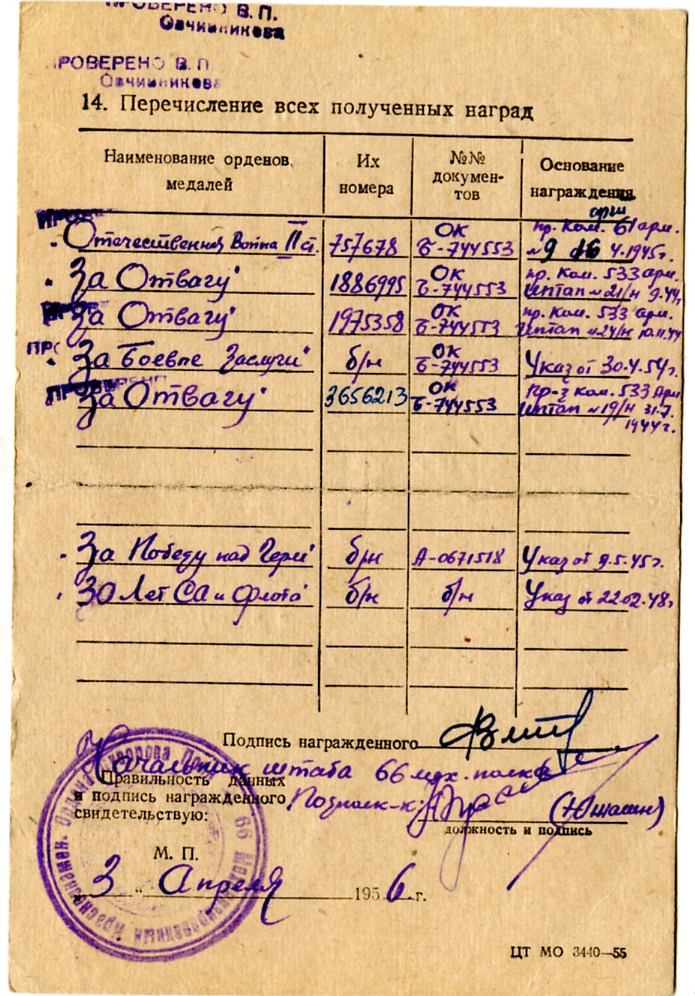 ПРОВЕРЕНО В. П.
Овчинникова
ПРОВЕРЕНО В. П
Овчинникова
14. Перечисление всех полученных наград
Наименование орденов, медалей
Их номера
№№ докумен-тов
Основание награждения
Отечественная Война II ст. 757678 ОК Б-744553 пр. Ком. 61 арм. №9 16 4.1945г.
За Отвагу 1886995 ОК Б-744553 пр. Ком. 533 арм. иптап №21/н 9.44
За Отвагу 1975358 ОК Б-744553 пр. Ком. 533 арм. иптап №24/н 10.11.44
За Боевые Заслуги б/н ОК Б-744553 Указ от 30.4.54г.
ПРОВЕРЕНО
За Отвагу 3656213 ОК Б-744553 Пр-з Ком. 533 Арм иптап №19/н 31.7. 1944г.
За Победу над Герм б/н А-0671518 Указ от 9.5.45г.
30 Лет СА и Флота б/н б/н Указ от 22.02.48г
Подпись награжденного
Начальник штаба 66 мех. полка
Правильность данных
и подпись награжденного Подполк-к
свидетельствую: (Юшасин)
должность и подпись
М. П.
„3 “ Апреля 1956 г.
ЦТ МО 3440—55